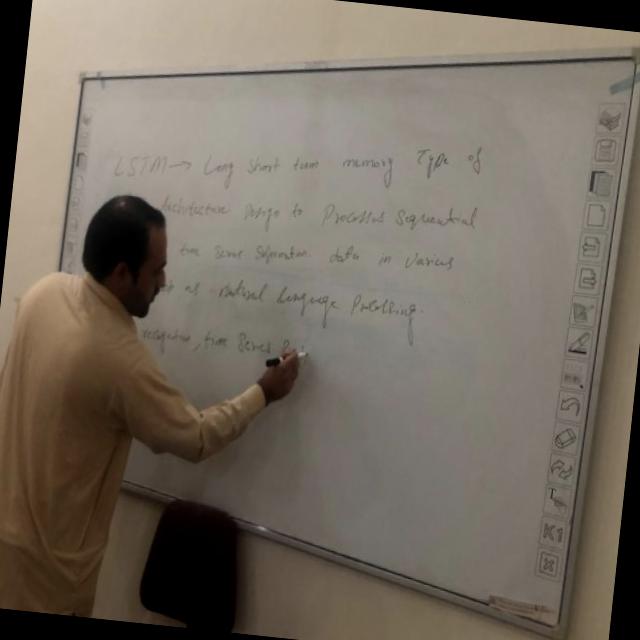 LSTM → Long short term memory Type of
Architecture Design to Processes Sequential
time series data in various
as natural language Processing.
recognition, time Series